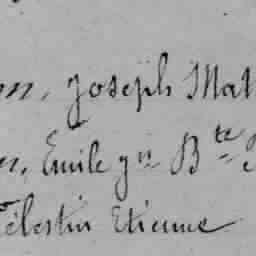 Joseph Mat
Emile jn Bte
Célestin Etienne